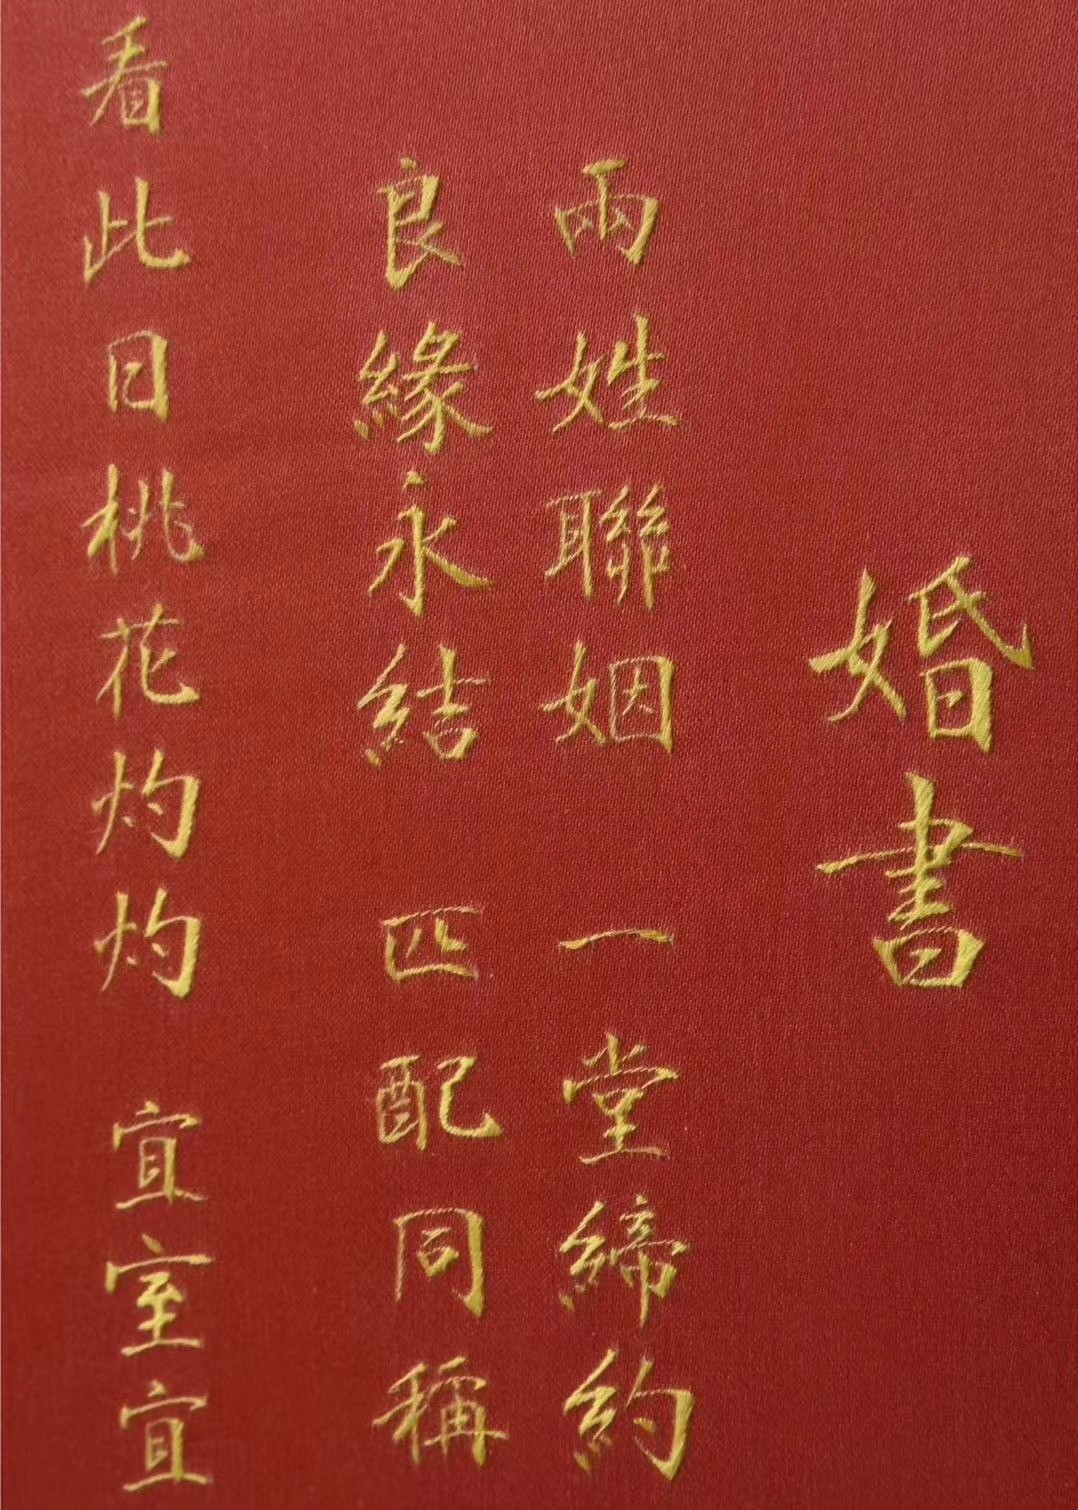 婚書
兩姓聯姻 一堂締約
良緣永結 匹配同稱
看此日桃花灼灼 宜室宜